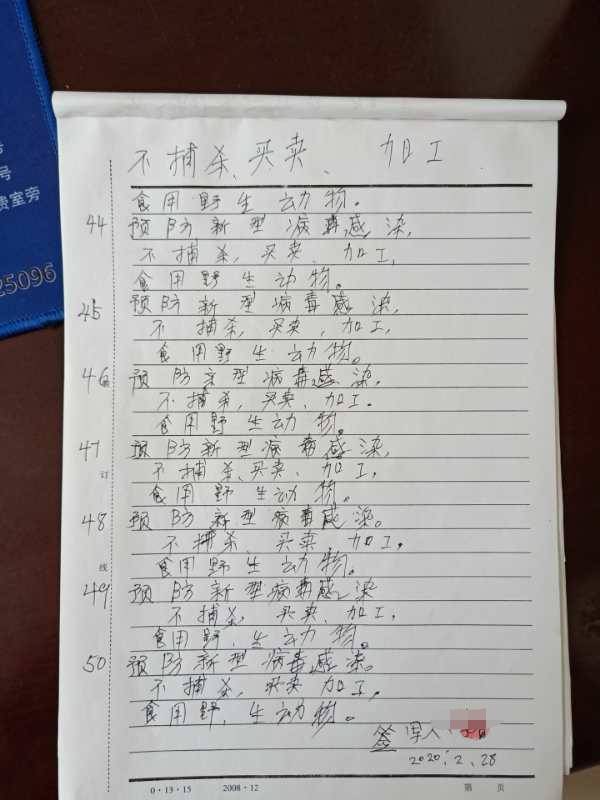 号
费室旁
25096
不捕杀、买卖、加工
食用野生动物。
44 预防新型病毒感染,
不捕杀,买卖、加工,
食用野生动物。
45 预防新型病毒感染,
不捕杀,买卖,加工,
食用野生动物。
46 预防亲型病毒感染,
不捕杀,买卖、加工.
食用野生动物。
47 预防新型病毒感染,
不捕杀、买卖、加工,
食用野生动物。
48 预防新型病毒感染。
不捕杀、买卖 加工,
食用野生动物。
49 预防新型病毒感染
不捕杀、买卖、加工,
食用野、生动物。
50 预防新型病毒感染。
不捕杀,买卖加工,
食用野、生动物。
签写人:
2020.2.28
订
线
0·13·15 2008·12 第 页